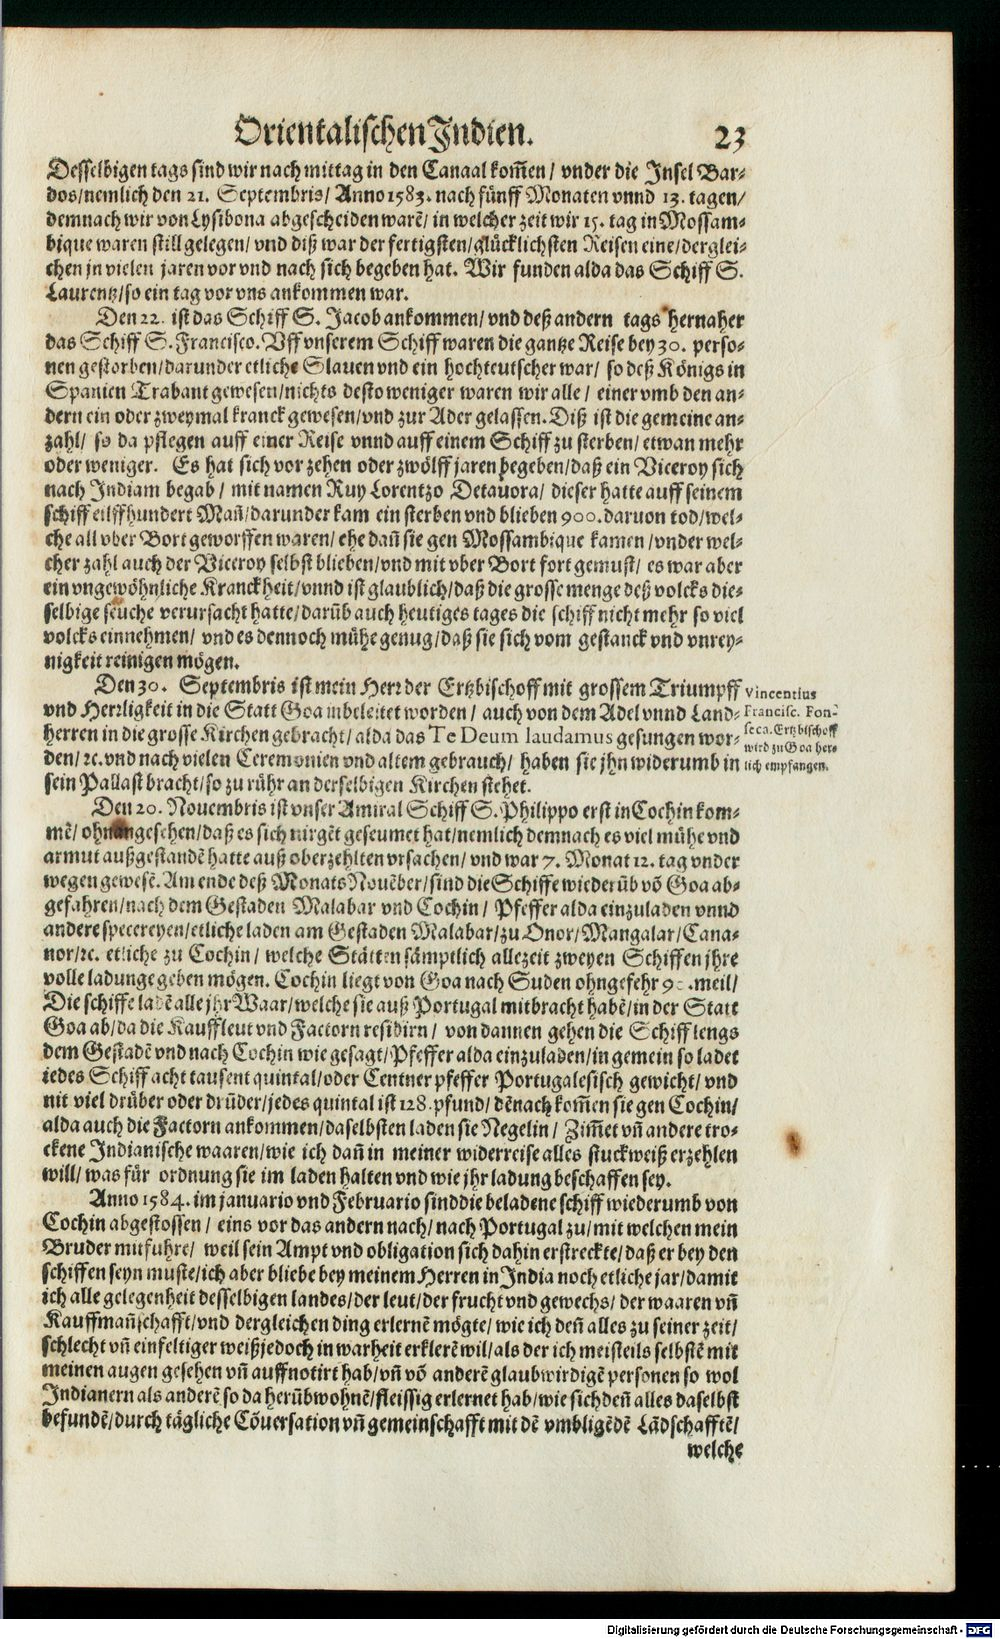 Orientalischen Indien. 23
Desselbigen tags sind wir nach mittag in den Canaal kom̃en / vnder die Insel Bar-
dos / nemlich den 21. Septembris / Anno 1583. nach fünff Monaten vnnd 13. tagen /
demnach wir von Lysibona abgescheiden warẽ / in welcher zeit wir 15. tag in Mossam-
bique waren still gelegen / vnd diß war der fertigsten / glücklichsten Reisen eine / derglei-
chen in vielen jaren vor vnd nach sich begeben hat. Wir funden alda das Schiff S.
Laurentz / so ein tag vor vns ankommen war.
Den 22. ist das Schiff S. Jacob ankommen / vnd deß andern tags hernaher
das Schiff S. Francisco. Vff vnserem Schiff waren die gantze Reise bey 30. perso-
nen gestorben / darunder etliche Slauen vnd ein hochteutscher war / so deß Königs in
Spanien Trabant gewesen / nichts desto weniger waren wir alle / einer vmb den an-
dern ein oder zweymal kranck gewesen / vnd zur Ader gelassen. Diß ist die gemeine an-
zahl / so da pflegen auff einer Reise vnnd auff einem Schiff zu sterben / etwan mehr
oder weniger. Es hat sich vor zehen oder zwölff jaren begeben / daß ein Viceroy sich
nach Indiam begab / mit namen Ruy Lorentzo Detauora / dieser hatte auff seinem
schiff eilffhundert Mañ / darunder kam ein sterben vnd blieben 900. daruon tod / wel-
che all vber Bort geworffen waren / ehe dañ sie gen Mossambique kamen / vnder wel-
cher zahl auch der Viceroy selbst blieben / vnd mit vber Bort fort gemust / es war aber
ein vngewöhnliche Kranckheit / vnnd ist glaublich / daß die grosse menge deß volcks die-
selbige seuche verursacht hatte / darüb auch heutiges tages die schiff nicht mehr so viel
volcks einnehmen / vnd es dennoch mühe genug / daß sie sich vom gestanck vnd vnrey-
nigkeit reinigen mögen.
Den 30. Septembris ist mein Herr der Ertzbischoff mit grossem Triumpff
vnd Herrligkeit in die Statt Goa inbeleitet worden / auch von dem Adel vnnd Land-
herren in die grosse Kirchen gebracht / alda das Te Deum laudamus gesungen wor-
den / ꝛc. vnd nach vielen Ceremonien vnd altem gebrauch / haben sie jhn widerumb in
sein Pallast bracht / so zu rühr an derselbigen Kirchen stehet.
Vincentius
Francisc. Fon-
seca. Ertzbischoff
wird zu Goa her-
lich empfangen.
Den 20. Nouembris ist vnser Amiral Schiff S. Philippo erst in Cochin kom-
mẽ / ohnangesehen / daß es sich nirgẽt geseumet hat / nemlich demnach es viel mühe vnd
armut außgestandẽ hatte auß oberzehlten vrsachen / vnd war 7. Monat 12. tag vnder
wegen gewesẽ. Am ende deß Monats Nouẽber / sind die Schiffe wiederüb võ Goa ab-
gefahren / nach dem Gestaden Malabar vnd Cochin / Pfeffer alda einzuladen vnnd
andere specereyen / etliche laden am Gestaden Malabar / zu Onor / Mangalar / Cana-
nor / ꝛc. etliche zu Cochin / welche Stätten sämptlich allezeit zweyen Schiffen jhre
volle ladunge geben mögen. Cochin liegt von Goa nach Suden ohngefehr meil /
Die schiffe ladẽ alle jhr Waar / welche sie auß Portugal mitbracht habẽ / in der Statt
Goa ab / da die Kauffleut vnd Factorn residirn / von dannen gehen die Schiff lengs
dem Gestadẽ vnd nach Cochin wie gesagt / Pfeffer alda einzuladen / in gemein so ladet
iedes Schiff acht tausent quintal / oder Centner pfeffer Portugalesisch gewicht / vnd
nit viel drüber oder drũder / jedes quintal ist 128. pfund / dẽnach kom̃en sie gen Cochin /
alda auch die Factorn ankommen / daselbsten laden sie Negelin / Zim̃et vñ andere tro-
ckene Indianische waaren / wie ich dañ in meiner widerreise alles stuckweiß erzehlen
will / was für ordnung sie im laden halten vnd wie jhr ladung beschaffen sey.
Anno 1584. im januario vnd Februario sind die beladene schiff wiederumb von
Cochin abgestossen / eins vor das andern nach / nach Portugal zu / mit welchen mein
Bruder mitfuhre / weil sein Ampt vnd obligation sich dahin erstreckte / daß er bey den
schiffen seyn muste / ich aber bliebe bey meinem Herren in India noch etliche jar / damit
ich alle gelegenheit desselbigen landes / der leut / der frucht vnd gewechs / der waaren vñ
Kauffmañschafft / vnd dergleichen ding erlernẽ mögte / wie ich deñ alles zu seiner zeit /
schlecht vñ einfeltiger weiß jedoch in warheit erklerẽ wil / als der ich meisteils selbstẽ mit
meinen augen gesehen vñ auffnotirt hab / vñ võ anderẽ glaubwirdigẽ personen so wol
Indianern als anderẽ so da herübwohnẽ / fleissig erlernet hab / wie sich deñ alles daselbst
befundẽ / durch tägliche Cõuersation vñ gemeinschafft mit dẽ vmbligẽdẽ Lãdschafftẽ /
welche
Digitalisierung gefördert durch die Deutsche Forschungsgemeinschaft - DFG